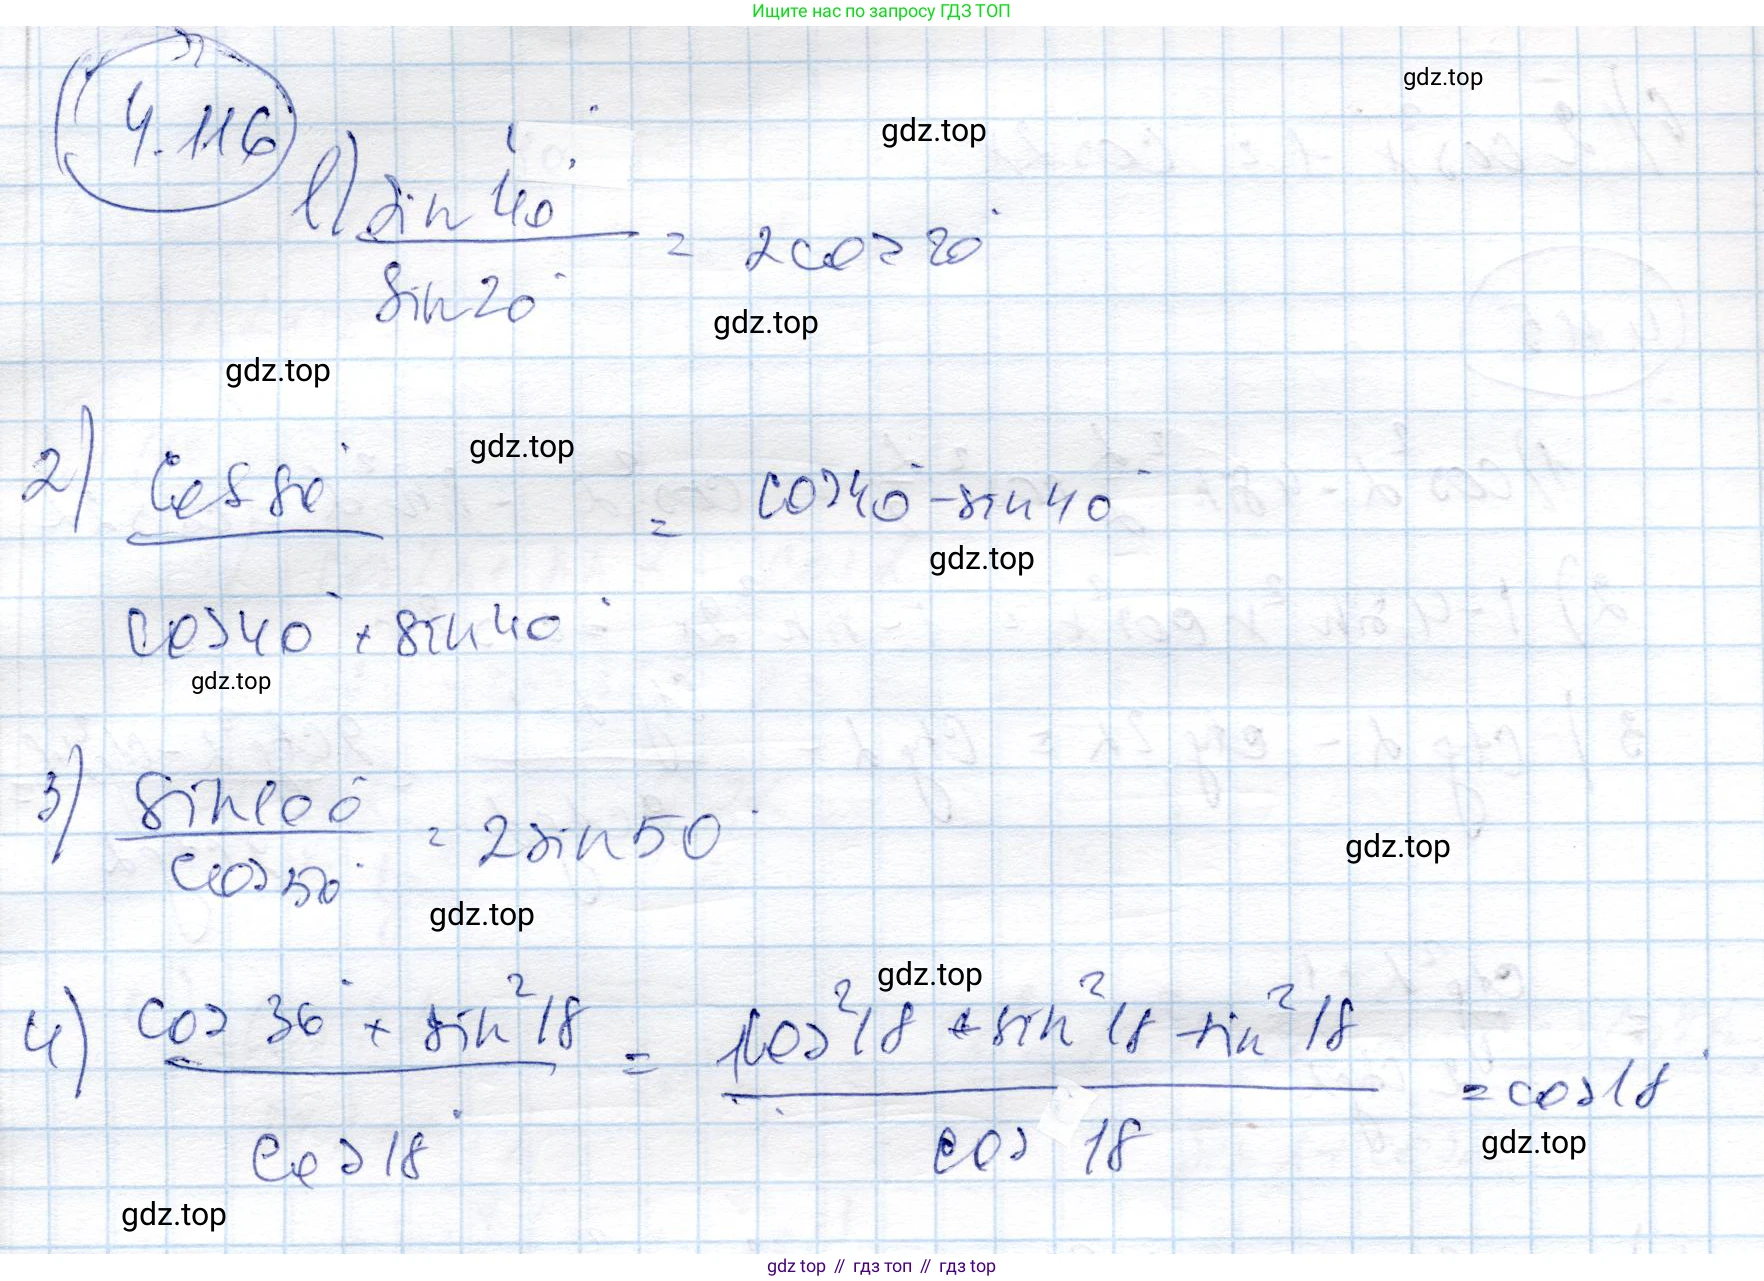 Ищите нас по запросу ГДЗ ТОП
gdz.top
4.116
gdz.top
1) sin 40° / sin 20° = 2 cos 20°
gdz.top
gdz.top
gdz.top
2) cos 80° / cos 40° + sin 40° = cos 40° - sin 40°
gdz.top
gdz.top
3) sin 100° / cos 50° = 2 sin 50°
gdz.top
gdz.top
gdz.top
4) cos 36° + sin² 18 / cos 18° = cos² 18 + sin² 18 - sin² 18 / cos 18 = cos 18°
gdz.top
gdz.top
gdz top // гдз топ // гдз top